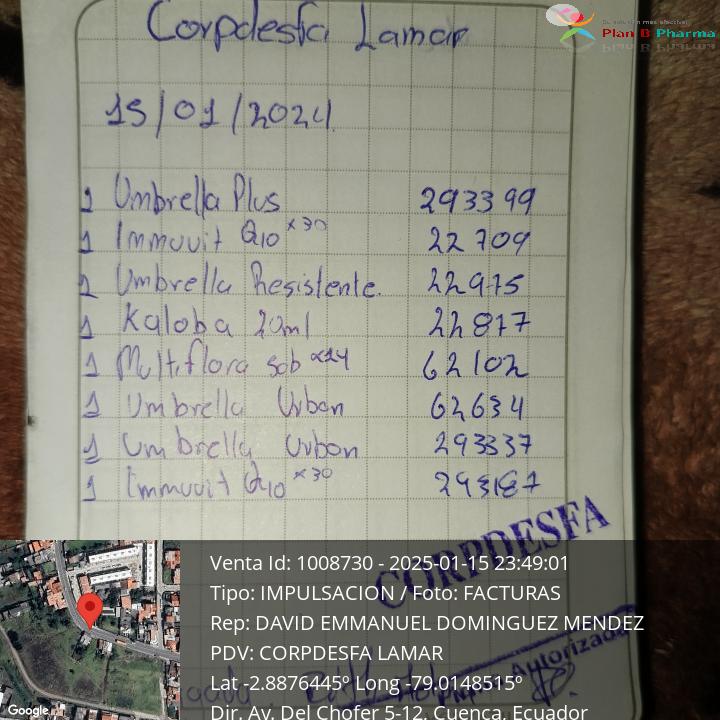 Corpdesfa Lamar
Plan B Pharma
15/01/2024
1 Umbrella Plus 293399
1 Immuvit Q10 x30 22709
1 Umbrella Resistente. 22975
1 Kaloba 20ml 22877
1 Multiflora sob x14 62102
1 Umbrella Urban 62634
1 Umbrella Urban 293337
1 Immuvit Q10 x30 293187
CORPDESFA
Autorizada
Venta Id: 1008730 - 2025-01-15 23:49:01
Tipo: IMPULSACION / Foto: FACTURAS
Rep: DAVID EMMANUEL DOMINGUEZ MENDEZ
PDV: CORPDESFA LAMAR
Lat -2.8876445º Long -79.0148515º
Dir. Av. Del Chofer 5-12, Cuenca, Ecuador
Google